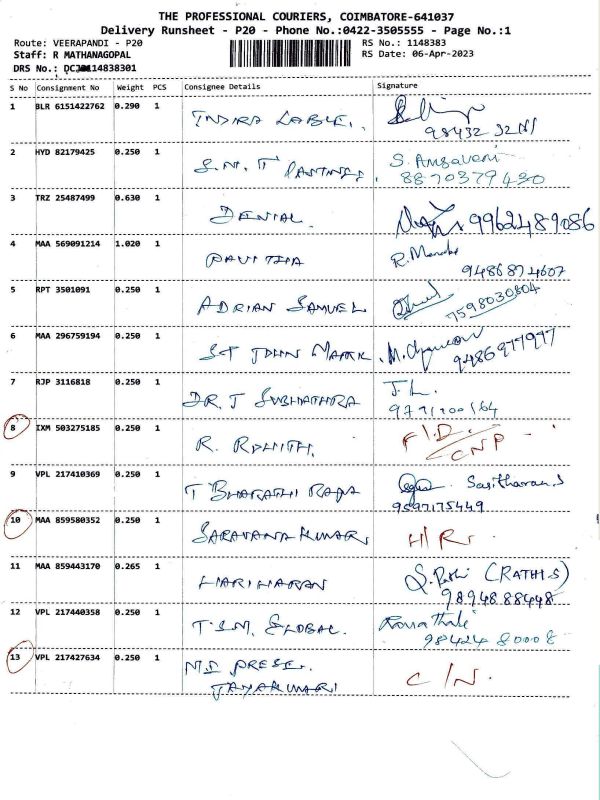 THE PROFESSIONAL COURIERS, COIMBATORE-641037
Delivery Runsheet - P20 - Phone No.:0422-3505555 - Page No.:1
Route: VEERAPANDI - P20
RS No.: 1148383
Staff: R MATHANAGOPAL
RS Date: 06-Apr-2023
DRS No.: 114838301
S No Consignment No Weight PCS Consignee Details Signature
1 BLR 6151422762 0.290 1
INDIRA
98432
2 HYD 82179425 0.250 1
S. Angavani
8870379430
3 TRZ 25487499 0.630 1
DENIAL 9962489086
4 MAA 569091214 1.020 1
R. Manoba
9486874607
5 RPT 3501091 0.250 1
ADRIAN SAMUEL
7598030804
6 MAA 296759194 0.250 1
ST JOHN
9486977977
7 RJP 3116818 0.250 1
DR. T SUBHATHRA
J. L.
8 IXM 503275185 0.250 1
R. ROHITH.
F/D.
CNP
9 VPL 217410369 0.250 1
T BHARATHI RAJA
Sasitharan.S
9597175449
10 MAA 859580352 0.250 1
SARAVANA KUMAR
H/R.
11 MAA 859443170 0.265 1
HARIHARAN
S. Rathi (RATHI S)
98948 88448
12 VPL 217440358 0.250 1
T.S.M. GLOBAL.
98424 80008
13 VPL 217427634 0.250 1
JAYAKUMARI
C/N.